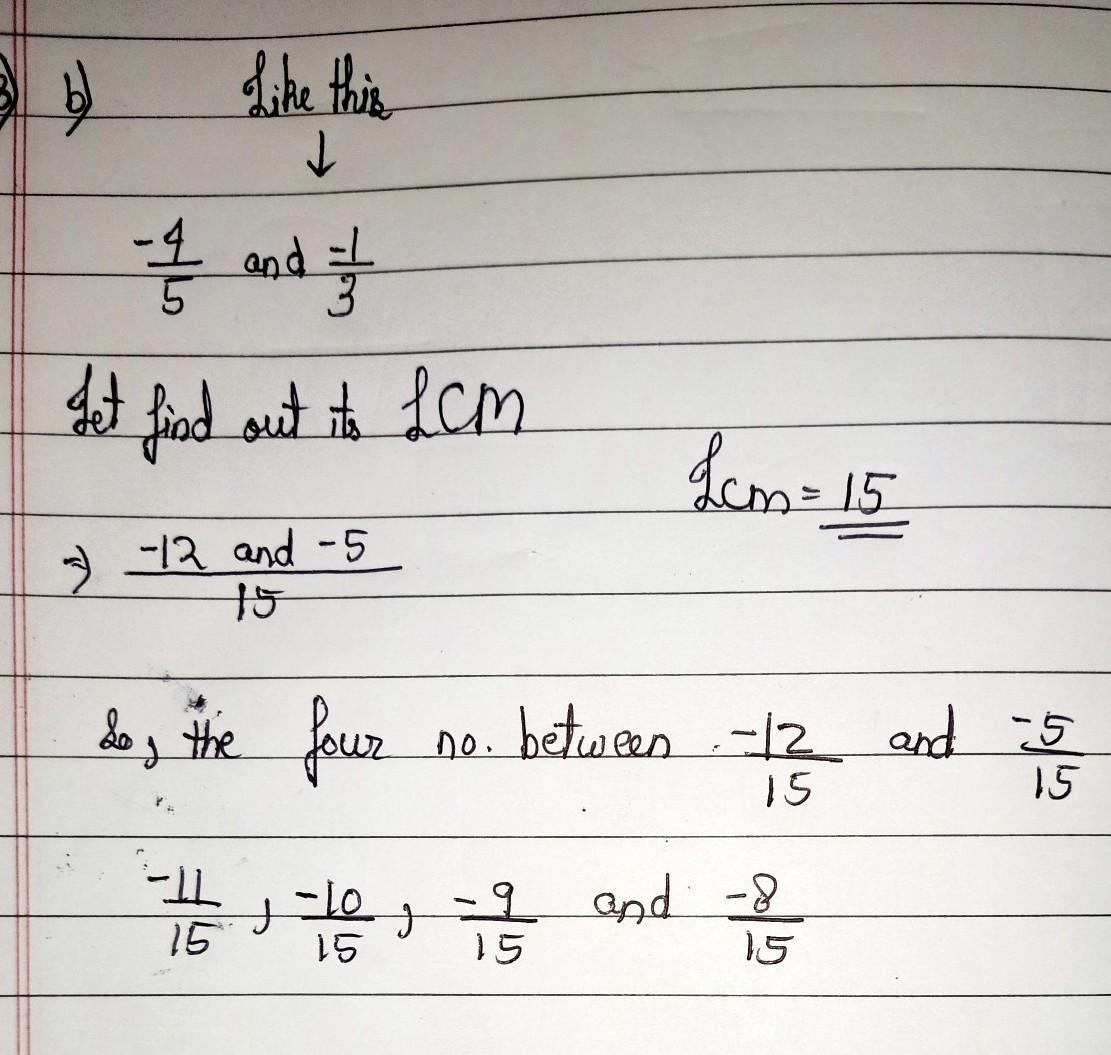 3) b) Like this
↓
-4/5 and -1/3
Let find out its LCM
Lcm = 15
⇒ -12 and -5 / 15
So, the four no. between -12/15 and -5/15
-11/15, -10/15, -9/15 and -8/15